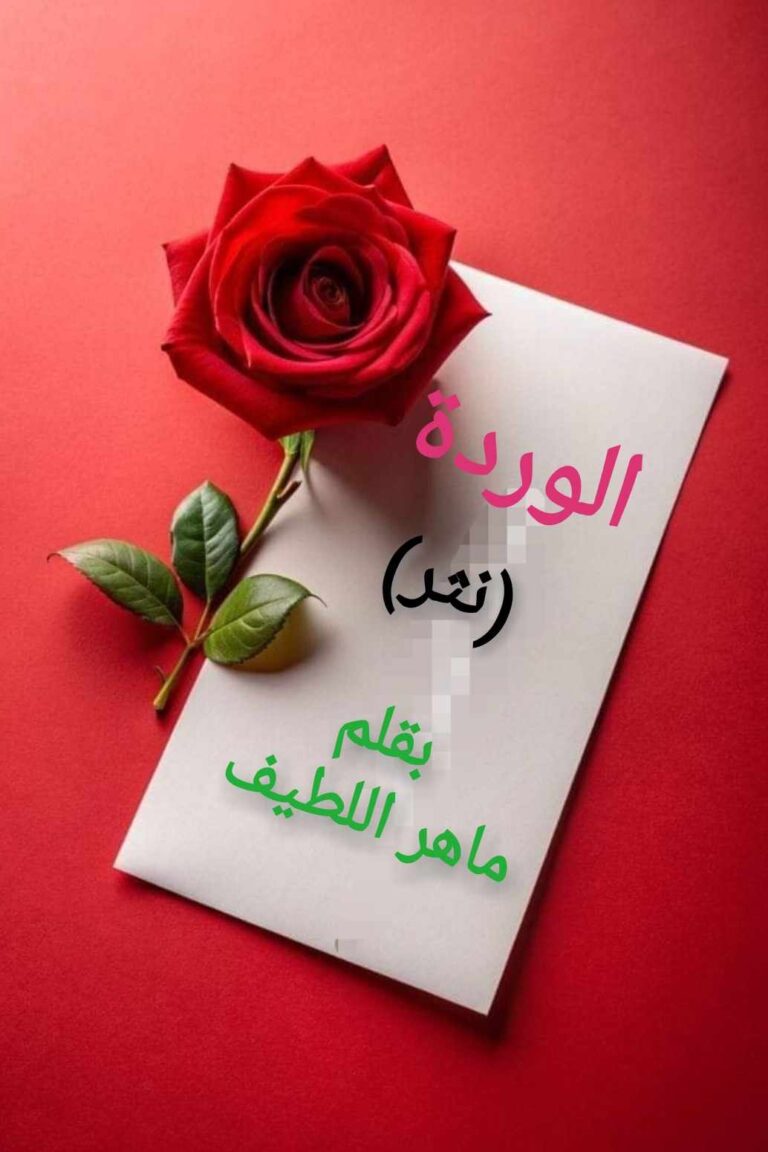 الوردة
(نثر)
بقلم
ماهر اللطيف